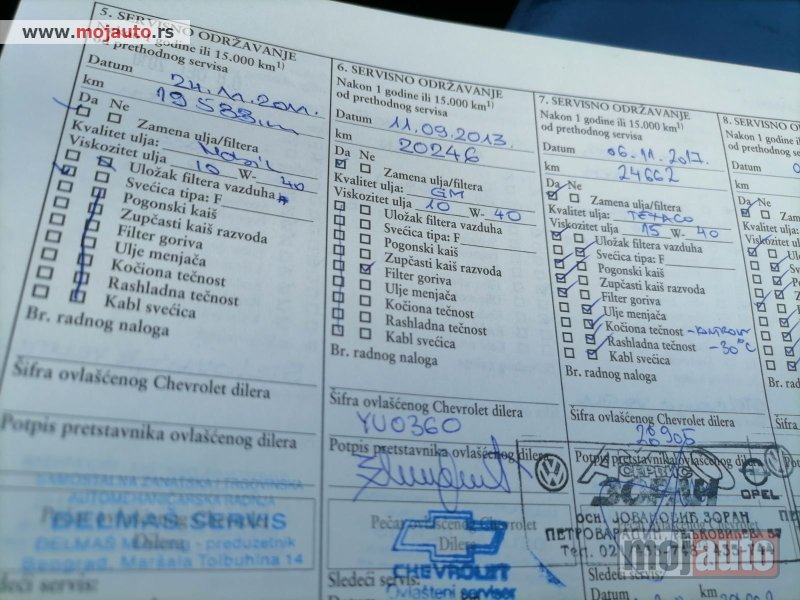 www.mojauto.rs
5. SERVISNO ODRŽAVANJE
Nakon 1 godine ili 15.000 km¹⁾
od prethodnog servisa
Datum 24.11.2011.
km 19583
Da Ne
Zamena ulja/filtera
Kvalitet ulja:
Viskozitet ulja 10 W- 40
Uložak filtera vazduha
Svećica tipa: F
Pogonski kaiš
Zupčasti kaiš razvoda
Filter goriva
Ulje menjača
Kočiona tečnost
Rashladna tečnost
Kabl svećica
Br. radnog naloga
Šifra ovlašćenog Chevrolet dilera
Potpis pretstavnika ovlašćenog dilera
SAMOSTALNA ZANATSKA I TRGOVINSKA
AUTOMEHANIČARSKA RADNJA
DELMAŠ SERVIS
DELMAŠ - preduzetnik
Beograd, Maršala Tolbuhina 14
Sledeći servis:
6. SERVISNO ODRŽAVANJE
Nakon 1 godine ili 15.000 km¹⁾
od prethodnog servisa
Datum 11.09.2013.
km 20246
Da Ne
Zamena ulja/filtera
Kvalitet ulja: GM
Viskozitet ulja 10 W- 40
Uložak filtera vazduha
Svećica tipa: F
Pogonski kaiš
Zupčasti kaiš razvoda
Filter goriva
Ulje menjača
Kočiona tečnost
Rashladna tečnost
Kabl svećica
Br. radnog naloga
Šifra ovlašćenog Chevrolet dilera
YU0360
Potpis pretstavnika ovlašćenog dilera
Pečat ovlašćenog Chevrolet
Dilera
CHEVROLET
Ovlašteni serviser
Sledeći servis:
Datum
7. SERVISNO ODRŽAVANJE
Nakon 1 godine ili 15.000 km¹⁾
od prethodnog servisa
Datum 06.11.2017.
km 24662
Da Ne
Zamena ulja/filtera
Kvalitet ulja: TEXACO
Viskozitet ulja 15 W- 40
Uložak filtera vazduha
Svećica tipa: F
Pogonski kaiš
Zupčasti kaiš razvoda
Filter goriva
Ulje menjača
Kočiona tečnost
Rashladna tečnost -30°C
Kabl svećica
Br. radnog naloga
Šifra ovlašćenog Chevrolet dilera
26905
Potpis pretstavnika ovlašćenog dilera
OPEL
ЈОВАНОВИЋ ЗОРАН
Sledeći servis:
Datum
8. SERVISNO
Nakon 1 godine
od prethodnog
Datum
km
Da Ne
Zamena
Kvalitet ulja:
Viskozitet
mojauto